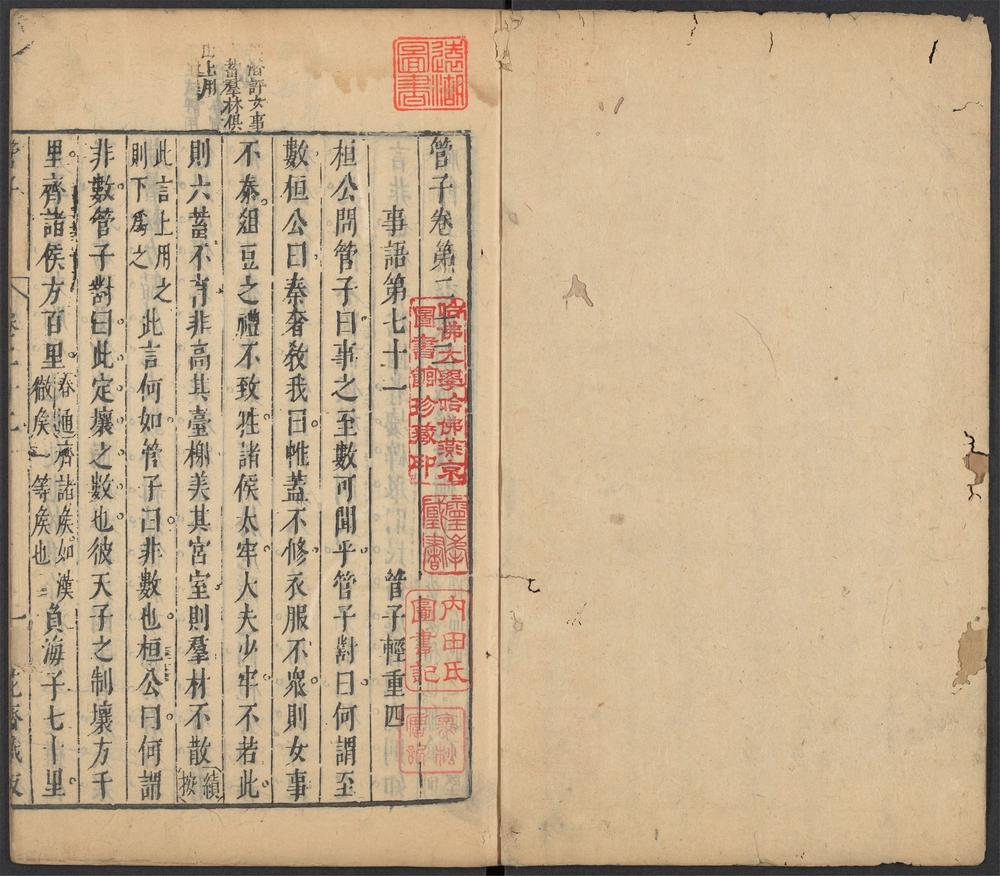 管子卷第二十三
事語第七十一　管子輕重四
桓公問管子曰事之至數可聞乎管子對曰何謂至
數桓公曰秦奢敎我曰帷蓋不修衣服不衆則女事
不泰俎豆之禮不致牲諸侯太牢大夫少牢不若此
則六畜不育非高其臺榭美其宮室則羣材不散續按
此言上用之
則下爲之
此言何如管子曰非數也桓公曰何謂
非數管子對曰此定壤之數也彼天子之制壤方千
里齊諸侯方百里
春通齊諸矦如漢
徹矦一等矦也
負海子七十里
評女事
畜羣林俱
上用
遠湖
圖書
哈佛大學哈佛燕京
圖書館珍藏印
內田氏
圖書記